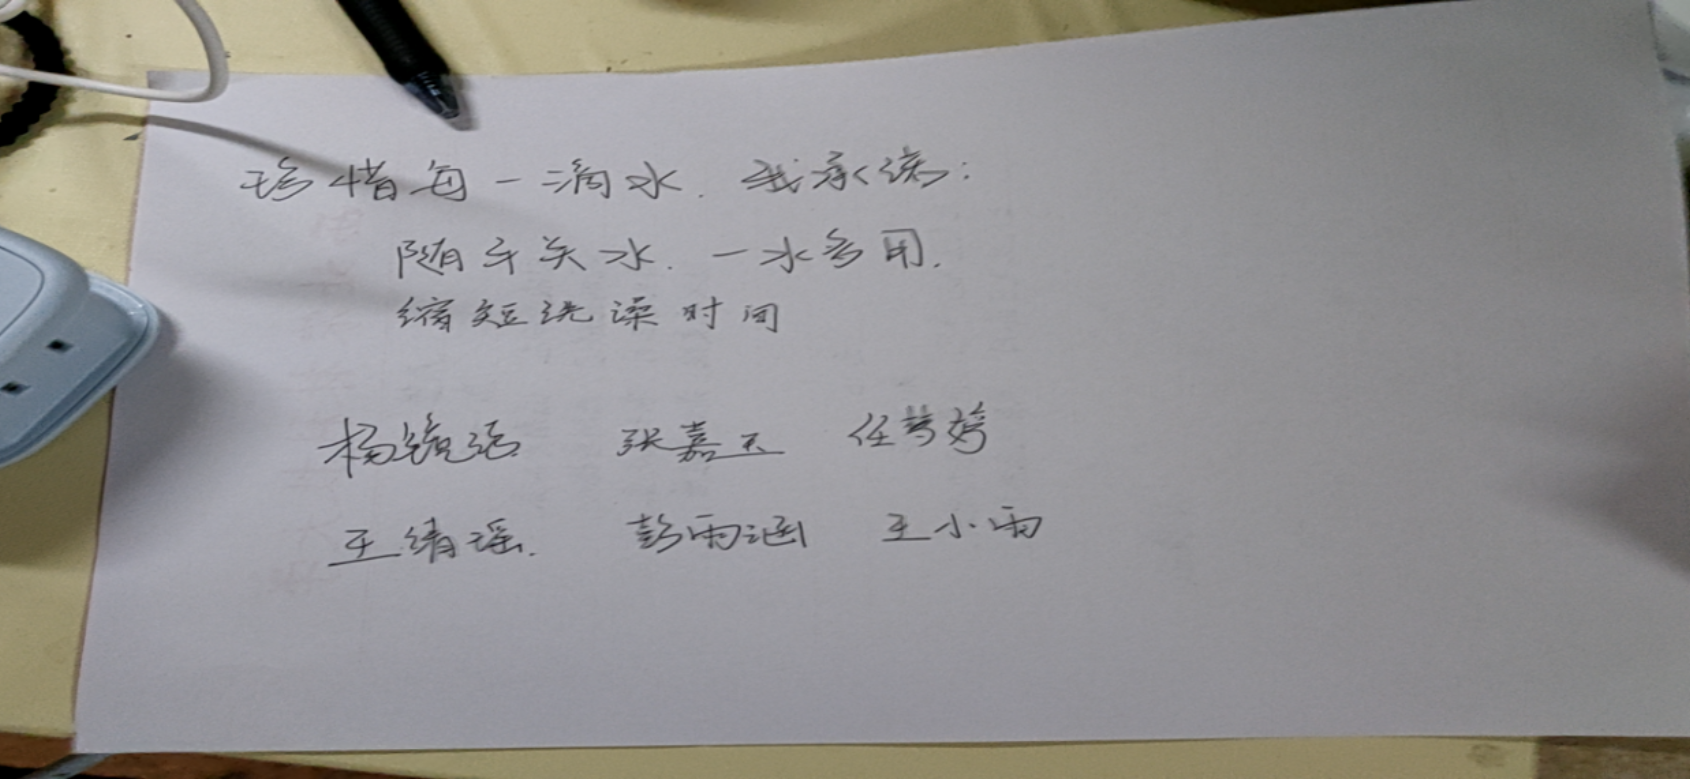 珍惜每一滴水. 我承诺:
随手关水. 一水多用.
缩短洗澡时间
杨 张嘉玉 任梦婷
王绮瑶. 彭雨涵 王小雨